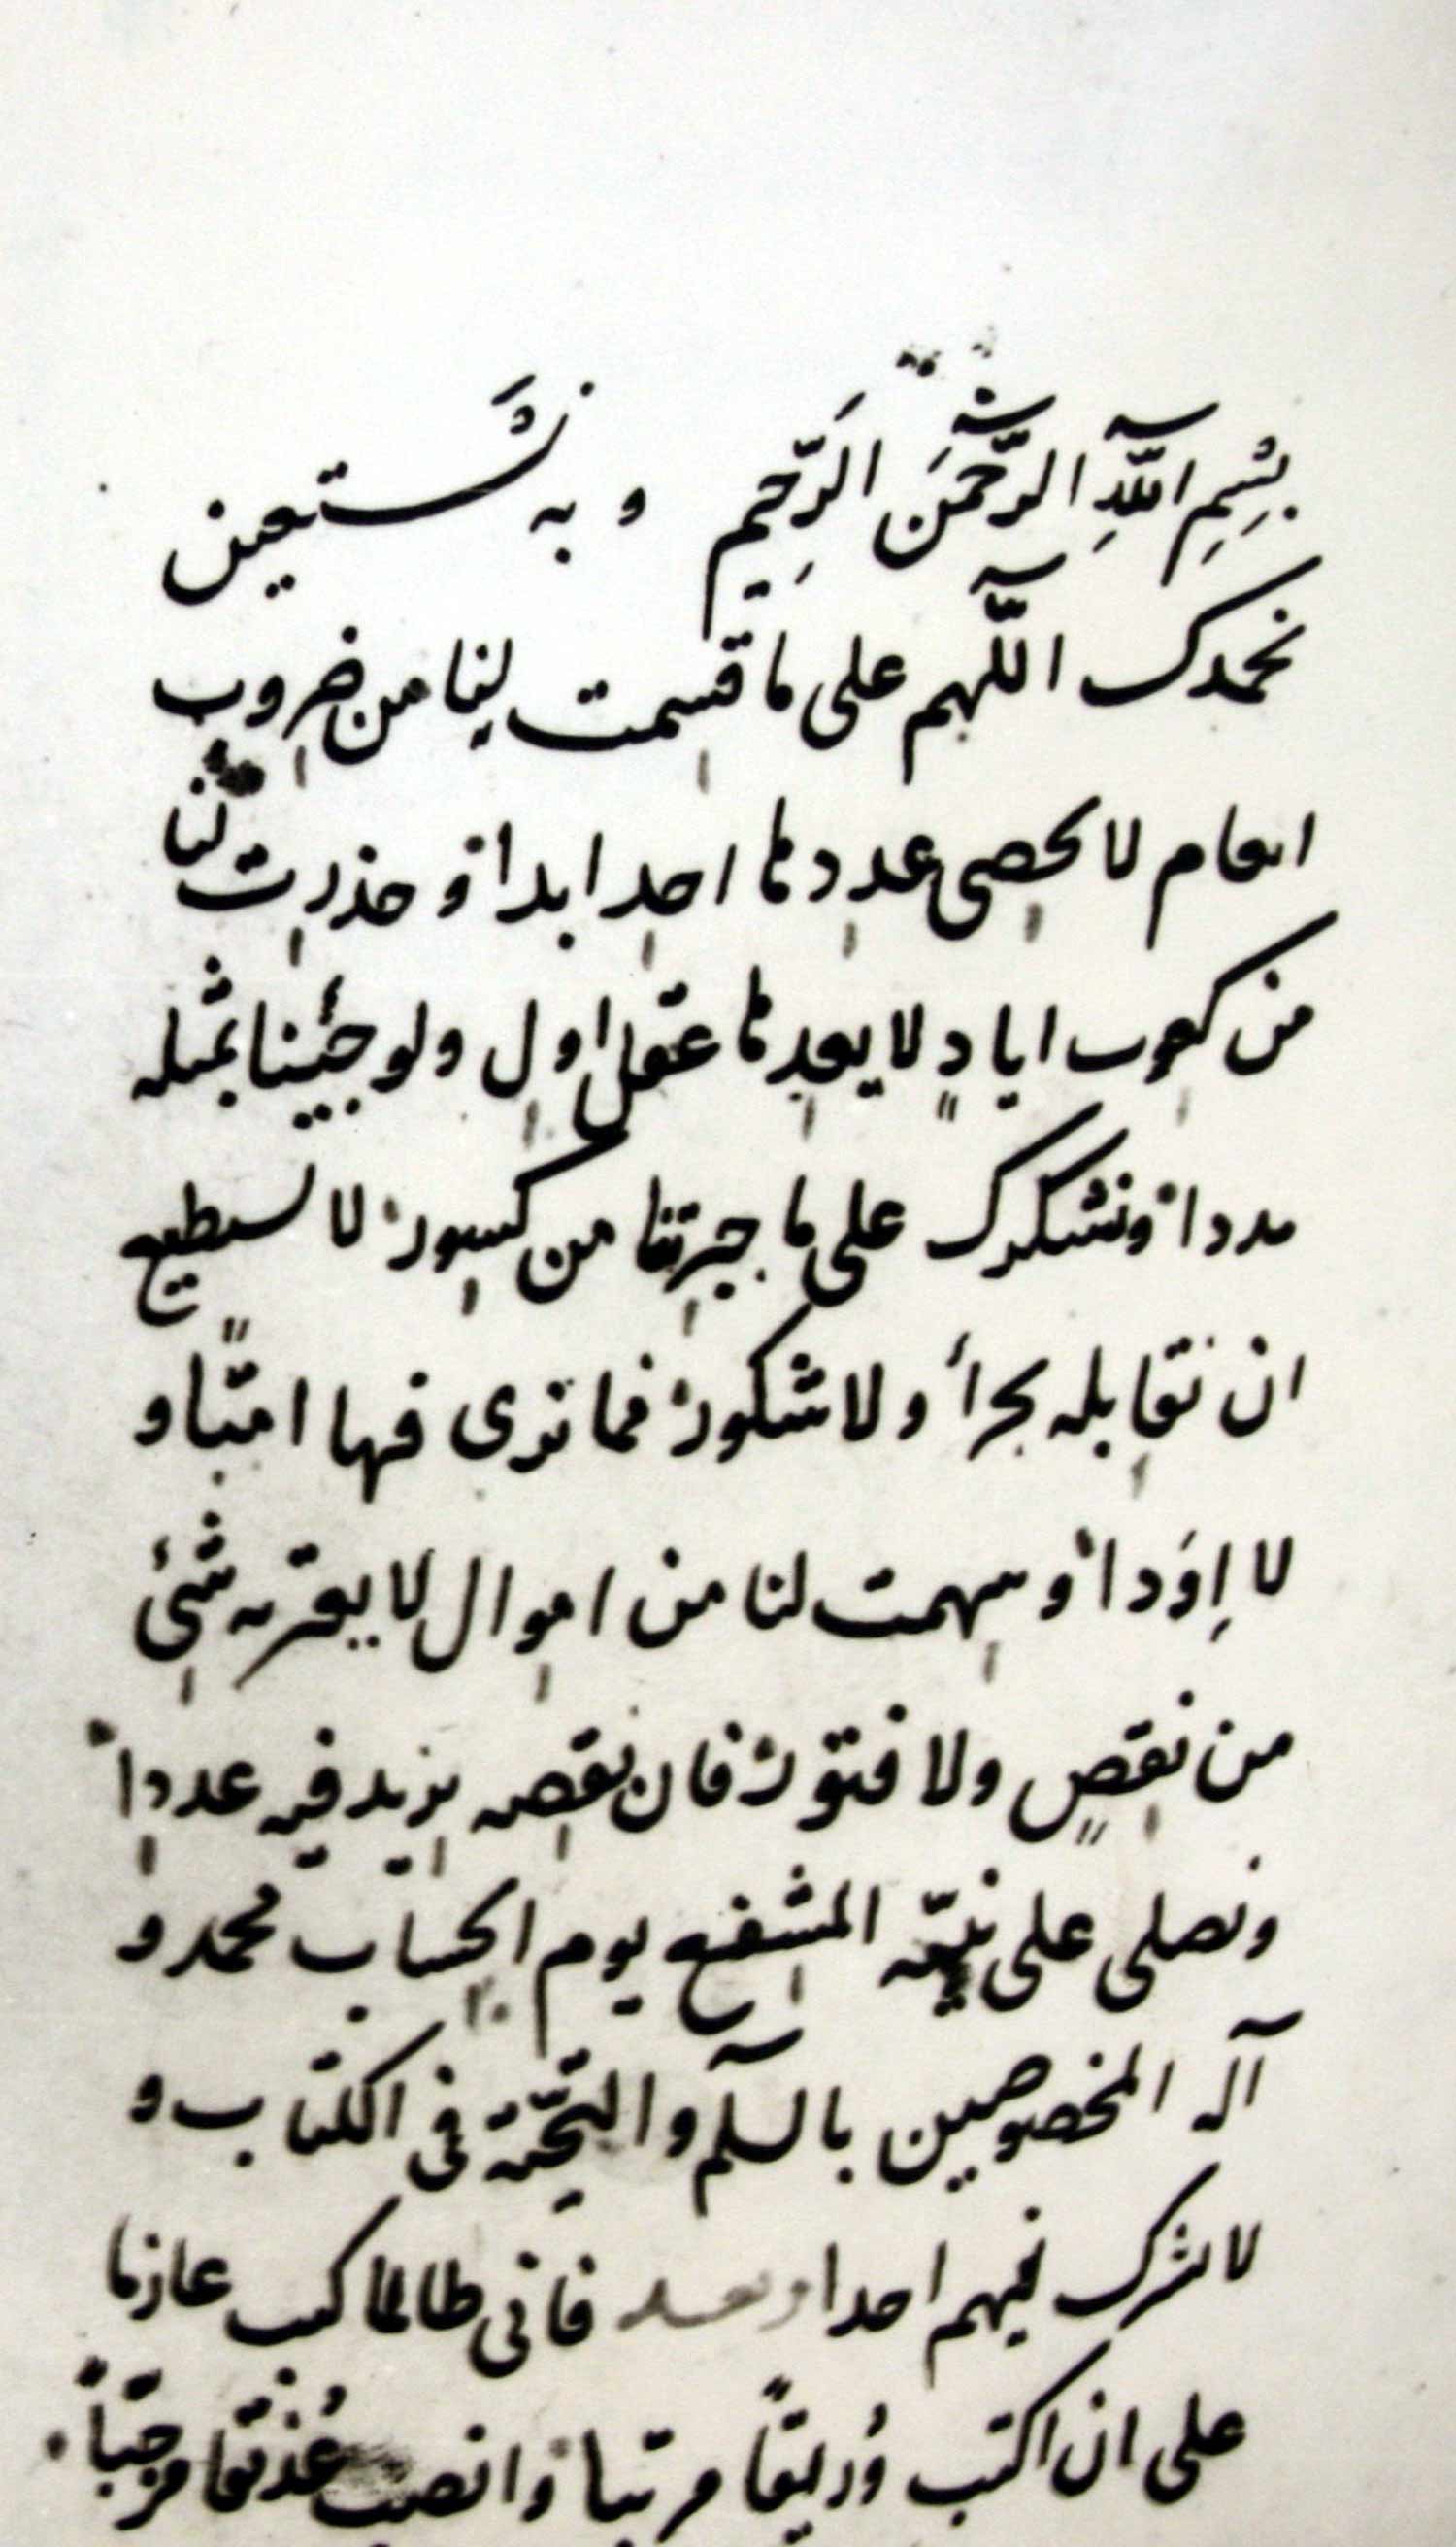 بِسْمِ اللّٰهِ الرَّحْمَنِ الرَّحِيم و به نَسْتعين
نحمدك اللّهم على ما قسمت لنا من ضروب
انعام لا يحصى عددها احد ابداً و حذرت لنا
من كعوب ايادٍ لا يعدها عقل اول ولو جئنا بمثله
مدداً ونشكرك على ما جبرتنا من كسور لا نسطيع
ان نقابله بجزأ ولا شكور فما نرى فيها امتاً و
لا اِوَداً و سهمت لنا من اموال لا يعتريه شئ
من نقصٍ ولا فتور فان نقصه يزيد فيه عدداً
ونصلى على نبيّه المشفع يوم الحساب محمد و
آله المخصوصين بالسلٓم و التحيّة فى الكتاب و
لا نشرك فيهم احدا وبعد فانى طالما كنت عازما
على ان اكتب وُريقاً مرتبا و انصب عُذيقا مرجّباً